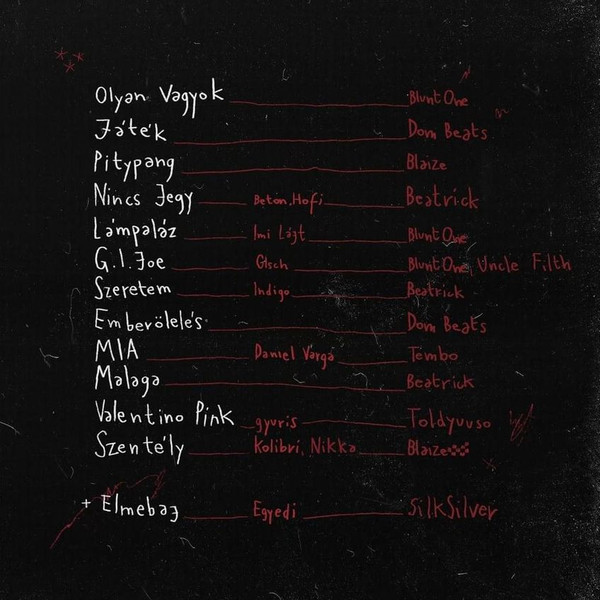 Olyan Vagyok Blunt One
Játék Dom Beats
Pitypang Blaize
Nincs Jegy Beton.Hofi Beatrick
Lámpaláz Imi Lájt Blunt One
G.I.Joe Glsch Blunt One, Uncle Filth
Szeretem Indigo Beatrick
Emberölelés Dom Beats
MIA Daniel Varga Tembo
Malaga Beatrick
Valentino Pink gyuris Toldyuvso
Szentély Kolibri, Nikka Blaize
+ Elmebaj Egyedi SilkSilver